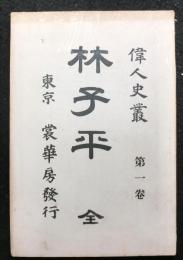 偉人史叢
第一卷
林子平 全
東京 裳華房發行